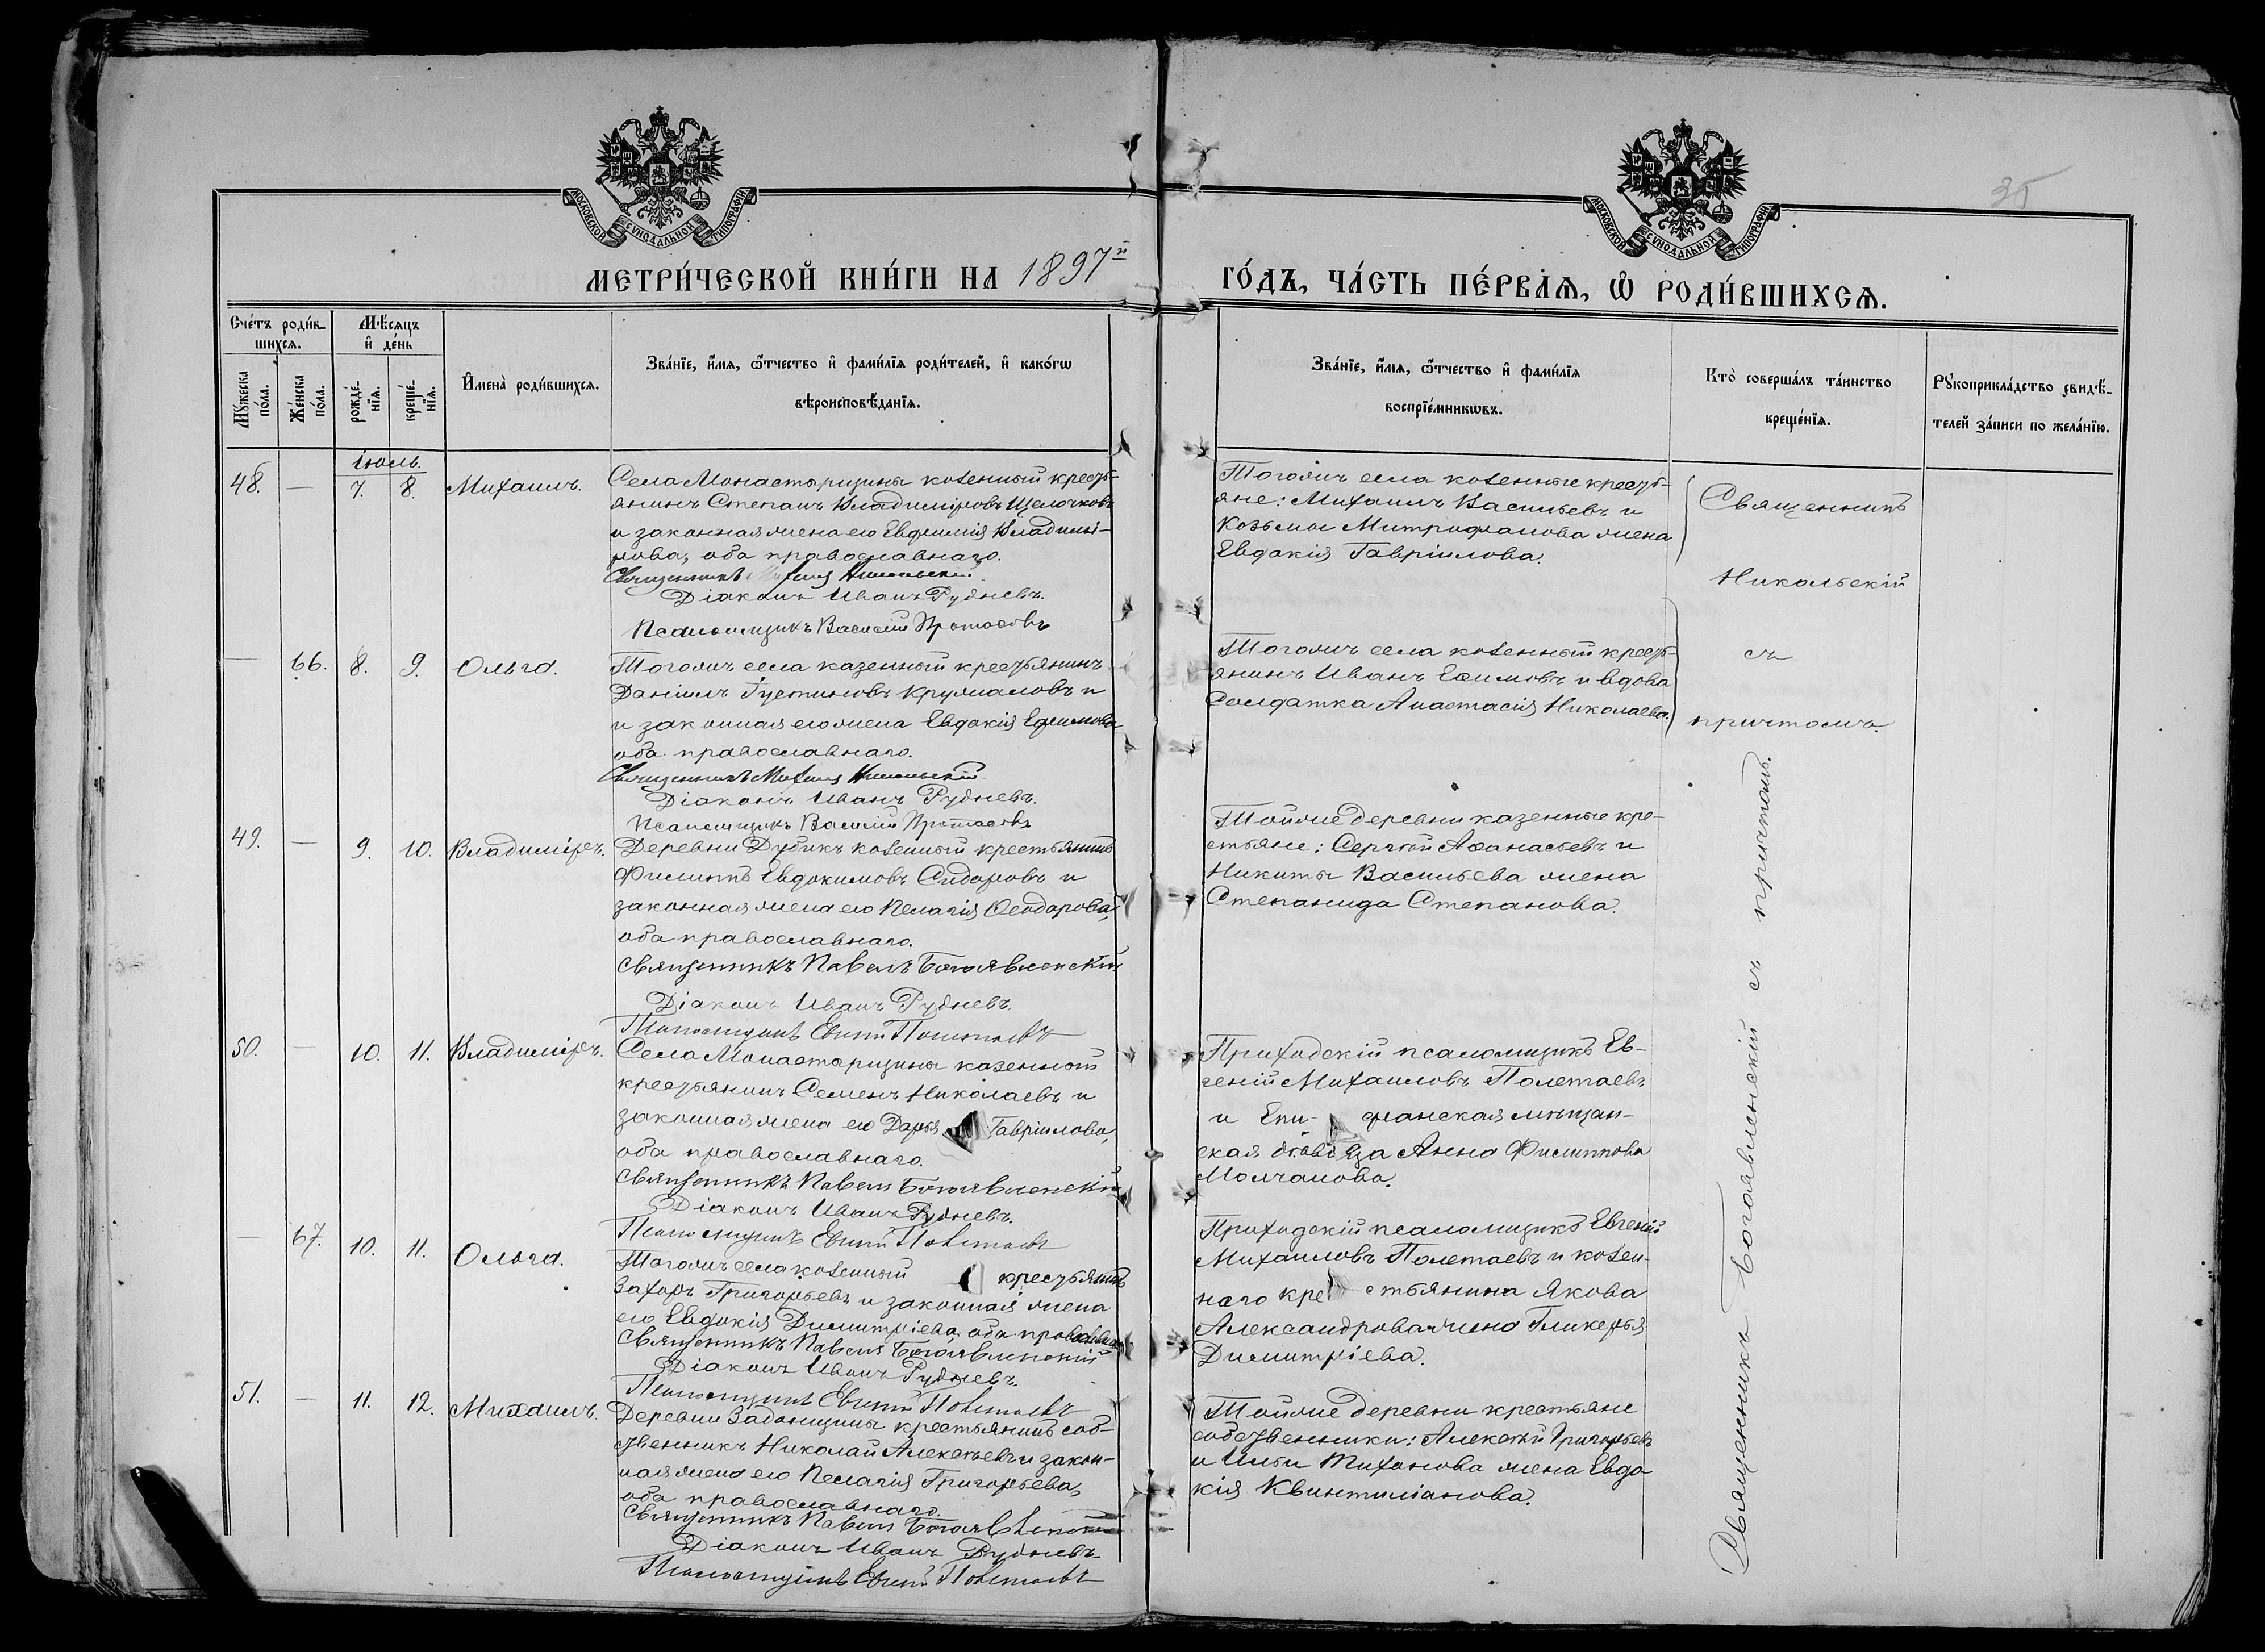 35
МОСКОВСКОЙ СѴНОДАЛЬНОЙ ТИПОГРАФІИ
МОСКОВСКОЙ СѴНОДАЛЬНОЙ ТИПОГРАФІИ
МЕТРИ́ЧЕСКОЙ КНИ́ГИ НА 1897й
ГО́ДЪ, ЧА́СТЬ ПЕ́РВАЯ, Ѡ РОДИ́ВШИХСѦ.
Счéтъ роди́в-
шихсѧ.
Мѣ́сѧцъ
и҆ дéнь
Мꙋ́жеска
по́ла.
Жéнска
по́ла.
рождé-
нїѧ.
крещé-
нїѧ.
И҆мена̀ роди́вшихсѧ.
Звáнїе, и҆́мѧ, ѻ҆́тчество и҆ фами́лїѧ роди́телей, и҆ како́гѡ
вѣроисповѣ́данїѧ.
Звáнїе, и҆́мѧ, ѻ҆́тчество и҆ фами́лїѧ
воспрїéмникѡвъ.
Кто̀ совершáлъ тáинство
крещéнїѧ.
Рꙋкоприклáдство свидѣ́-
телей зáписи по желáнїю.
Іюль.
48. — 7. 8. Михаилъ.
Села Монастырщины казенный кресть-
янинъ Степанъ Владиміровъ Щелочковъ
и законная жена его Евфимія Владимі-
рова, оба православнаго.
Священникъ Михаил Никольскій
Діаконъ Иванъ Рудневъ.
Псаломщикъ Василій Протасовъ
Тогожъ села казенные кресть-
яне: Михаилъ Васильевъ и
Козьмы Митрофанова жена
Евдокія Гавріилова.
Священникъ
Никольскій
съ
причтомъ.
— 66. 8. 9. Ольга.
Тогожъ села казенный крестьянинъ
Даніилъ Густиновъ и
и законная его жена Евдокія Ефимова
оба православнаго.
Священникъ Михаил Никольскій
Діаконъ Иванъ Рудневъ.
Псаломщикъ Василій Протасовъ
Тогожъ села казенный кресть-
янинъ Иванъ Ефимовъ и вдова
Солдатка Анастасія Николаева.
49. — 9. 10. Владиміръ.
Деревни Дубикъ казенный крестьянинъ
Филиппъ Евдокимовъ Сидоровъ и
законная жена его Пелагія Ѳеодорова,
оба православнаго.
Священникъ Павелъ Богоявленскій
Діаконъ Иванъ Рудневъ.
Псаломщикъ Евгеній Полетаевъ
Тойже деревни казенные кре-
стьяне: Сергѣй Аѳанасьевъ и
Никиты Васильева жена
Степанида Степанова.
50. — 10. 11. Владиміръ.
Села Монастырщины казенный
крестьянинъ Семенъ Николаевъ и
законная жена его Дарья Гавріилова,
оба православнаго.
Священникъ Павелъ Богоявленскій
Діаконъ Иванъ Рудневъ.
Псаломщикъ Евгеній Полетаевъ
Приходскій псаломщикъ Ев-
геній Михаиловъ Полетаевъ
и Епи- фанская мѣщан-
ская дѣвица Анна Филиппова
Молчанова.
— 67. 10. 11. Ольга.
Тогожъ села казенный крестьянинъ
Захаръ Григорьевъ и законная жена
его Евдокія Димитріева, оба православнаго.
Священникъ Павелъ Богоявленскій
Діаконъ Иванъ Рудневъ.
Псаломщикъ Евгеній Полетаевъ
Приходскій псаломщикъ Евгеній
Михаиловъ Полетаевъ и казен-
наго крестьянина Якова
Александрова жена Гликерья
Димитріева.
51. — 11. 12. Михаилъ.
Деревни Задонщины крестьянинъ соб-
ственникъ Николай Алексѣевъ и закон-
ная жена его Пелагія Григорьева,
оба православнаго.
Священникъ Павелъ Богоявленскій
Діаконъ Иванъ Рудневъ.
Псаломщикъ Евгеній Полетаевъ
Тойже деревни крестьяне
собственники: Алексѣй Григорьевъ
и Ильи Тихонова жена Евдо
кія Квинтиліанова.
Священникъ Богоявленскій съ причтомъ.